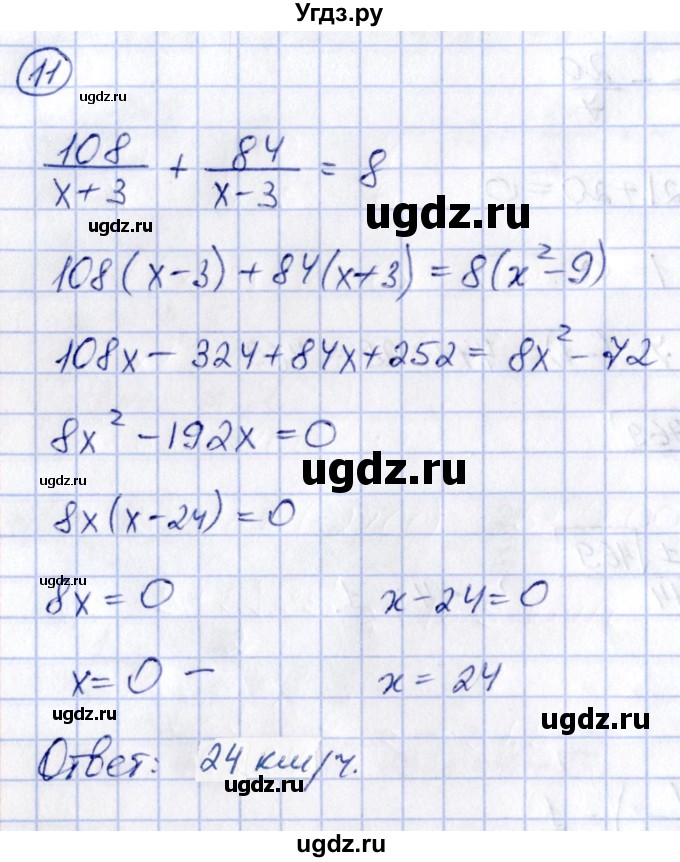 Угдз.ру
11
ugdz.ru
108/(x+3) + 84/(x-3) = 8
ugdz.ru
ugdz.ru
108(x-3)+84(x+3)=8(x²-9)
ugdz.ru
108x-324+84x+252=8x²-72
8x²-192x=0
ugdz.ru
ugdz.ru
8x(x-24)=0
ugdz.ru
8x=0 x-24=0
x=0 - x=24
ugdz.ru
ugdz.ru
Ответ: 24 км/ч.
ugdz.ru
ugdz.ru
Угдз.ру